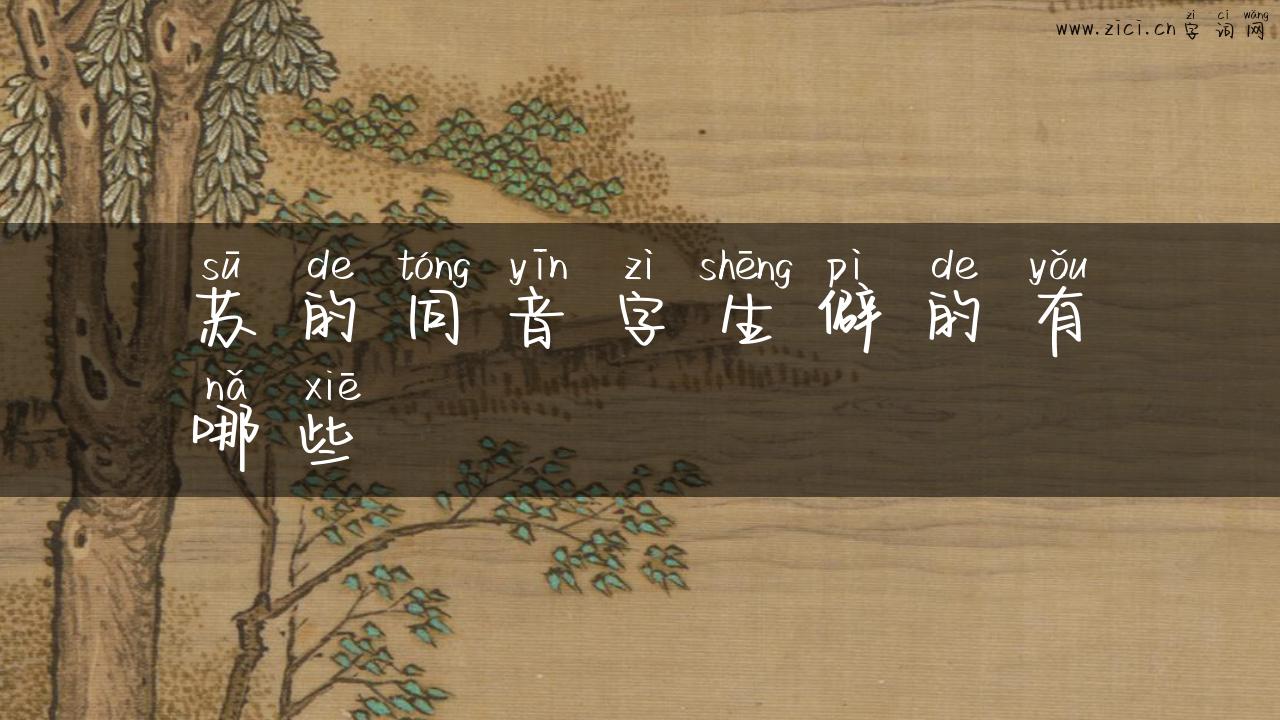 zì cí wǎng
www.zici.cn 字 词 网
sū de tóng yīn zì shēng pì de yǒu
苏 的 同 音 字 生 僻 的 有
nǎ xiē
哪 些